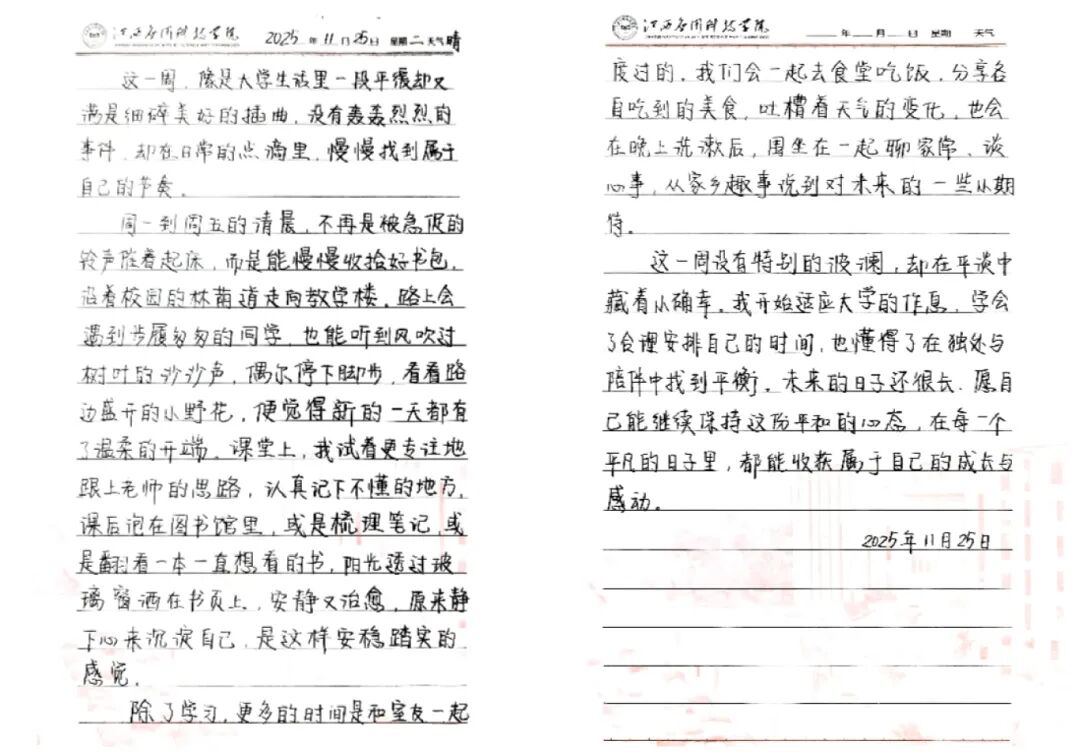 江西应用科技学院 2025 年 11 月 25 日 星期 二 天气 晴
这一周，像是大学生活里一段平缓却又
满是细碎美好的插曲，没有轰轰烈烈的
事件，却在日常的点滴里，慢慢找到属于
自己的节奏。
周一到周五的清晨，不再是被急促的
铃声催着起床，而是能慢慢收拾好书包，
沿着校园的林荫道走向教学楼，路上会
遇到步履匆匆的同学，也能听到风吹过
树叶的沙沙声，偶尔停下脚步，看看路
边盛开的小野花，便觉得新的一天都有
了温柔的开端。课堂上，我试着更专注地
跟上老师的思路，认真记下不懂的地方，
课后泡在图书馆里，或是梳理笔记，或
是翻看一本一直想看的书，阳光透过玻
璃窗洒在书页上，安静又治愈，原来静
下心来沉淀自己，是这样安稳踏实的
感觉。
除了学习，更多的时间是和室友一起
江西应用科技学院 年 月 日 星期 天气
度过的，我们会一起去食堂吃饭，分享各
自吃到的美食，吐槽着天气的变化，也会
在晚上洗漱后，围坐在一起聊家常、谈
心事，从家乡趣事说到对未来的一些小期
待。
这一周没有特别的波澜，却在平淡中
藏着小确幸。我开始适应大学的作息，学会
了合理安排自己的时间，也懂得了在独处与
陪伴中找到平衡。未来的日子还很长，愿自
己能继续保持这份平和的心态，在每一个
平凡的日子里，都能收获属于自己的成长与
感动。
2025年11月25日